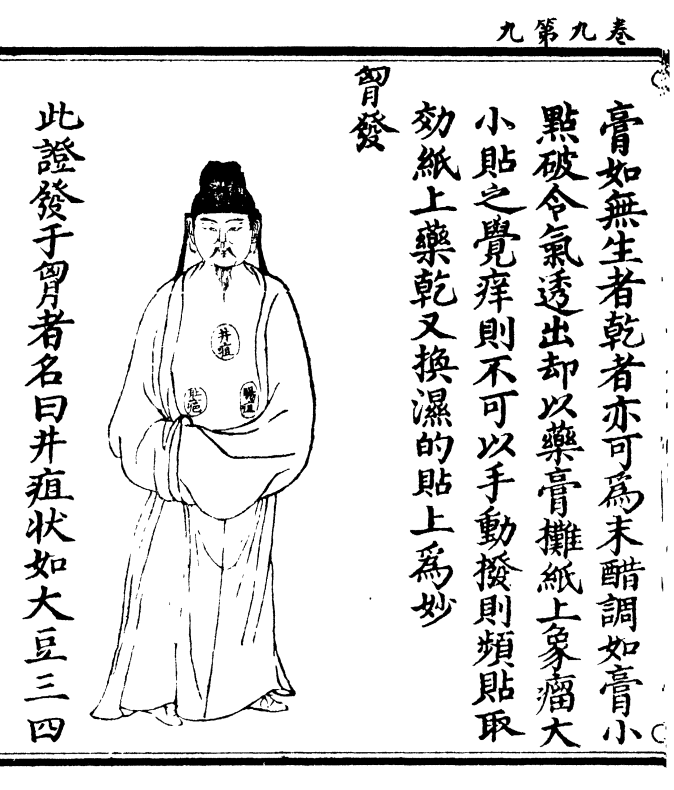 卷九第九
膏如無生者乾者亦可爲末醋調如膏小
點破令氣透出却以藥膏攤紙上象瘤大
小貼之覺痒則不可以手動撥則頻貼取
効紙上藥乾又換濕的貼上爲妙
胷發
井疽
此證發于胷者名曰井疽状如大豆三四